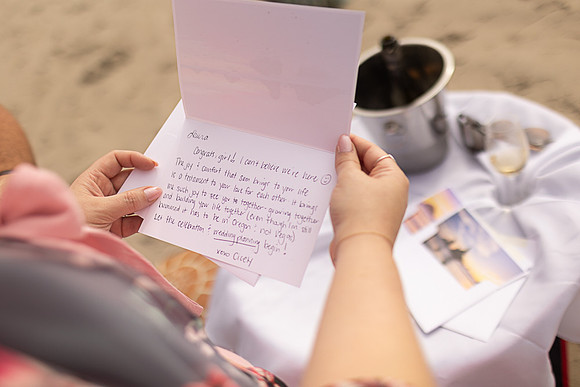 Laura
Congrats girl! I can't believe we're here ☺
The joy & comfort that Sam brings to your life
is a testament to your love for each other. It brings
me such joy to see you two growing together
and building your life together (Even though I'm still
bummed it has to be in Oregon & not Vegas)
Let the celebration & wedding planning begin!
xoxo Cicely